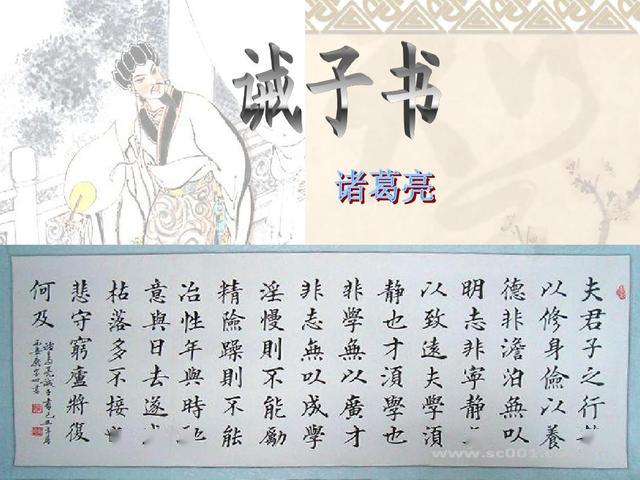 诫子书
诸葛亮
夫君子之行
以修身儉以養
德非澹泊無以
明志非寧靜
以致遠夫學須
靜也才須學也
非學無以廣才
非志無以成學
淫慢則不能勵
精險躁則不能
冶性年與時
意與日去遂
枯落多不接
悲守窮廬將復
何及
諸葛亮誡子書
www.sc001.com